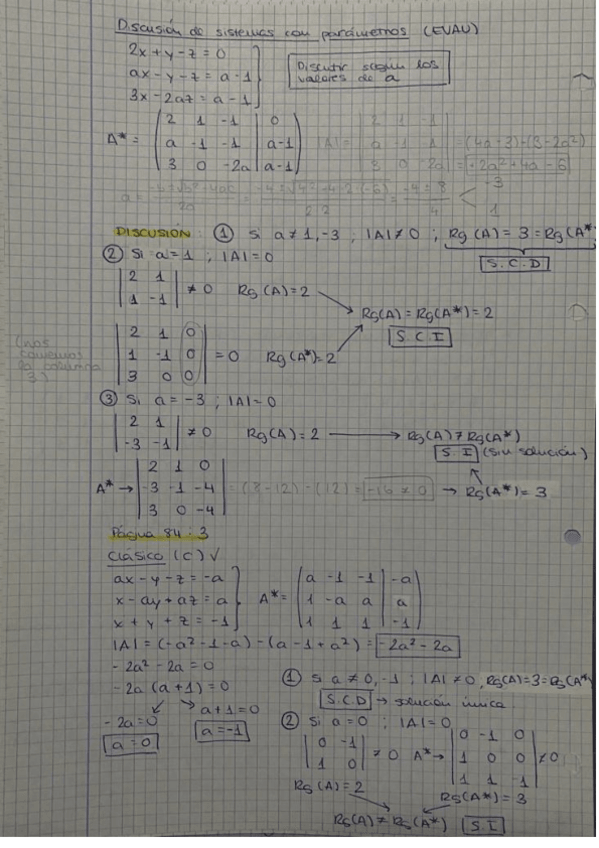 Discusión de sistemas con parámetros (EVAU)
2x + y - z = 0
ax - y - z = a - 1
3x - 2az = a - 1
Discutir según los valores de a
A* = ( 2 1 -1 | 0
a -1 -1 | a-1
3 0 -2a | a-1 )
|A| = | 2 1 -1
a -1 -1
3 0 -2a | = (4a - 3) - (3 - 2a²)
= 2a² + 4a - 6
-3
1
DISCUSIÓN: ① Si a ≠ 1, -3 ; |A| ≠ 0 ; Rg (A) = 3 = Rg (A*
S.C.D
② Si a = 1 ; |A| = 0
| 2 1
1 -1 | ≠ 0 Rg (A) = 2
Rg(A) = Rg(A*) = 2
S.C.I
| 2 1 0
1 -1 0
3 0 0 | = 0 Rg (A*) = 2
(nos
la columna
3)
③ Si a = -3 ; |A| = 0
| 2 1
-3 -1 | ≠ 0 Rg (A) = 2 → Rg(A) ≠ Rg(A*)
S.I (sin solución)
A* → | 2 1 0
-3 -1 -4
3 0 -4 | = (8 - 12) - (12) = -16 ≠ 0 → Rg(A*) = 3
Página 84 : 3
Clásico (c) ✓
ax - y - z = -a
x - ay + az = a
x + y + z = -1
A* = ( a -1 -1 | -a
1 -a a | a
1 1 1 | -1 )
|A| = (-a² - 1 - a) - (a - 1 + a²) = -2a² - 2a
- 2a² - 2a = 0
- 2a (a + 1) = 0
- 2a = 0
a = 0
a + 1 = 0
a = -1
① Si a ≠ 0, -1 ; |A| ≠ 0, Rg(A) = 3 = Rg(A*
S.C.D → solución única
② Si a = 0 ; |A| = 0
| 0 -1
1 0 | ≠ 0 A* → | 0 -1 0
1 0 0
1 1 -1 | ≠ 0
Rg (A) = 2
Rg(A*) = 3
Rg(A) ≠ Rg(A*) S.I